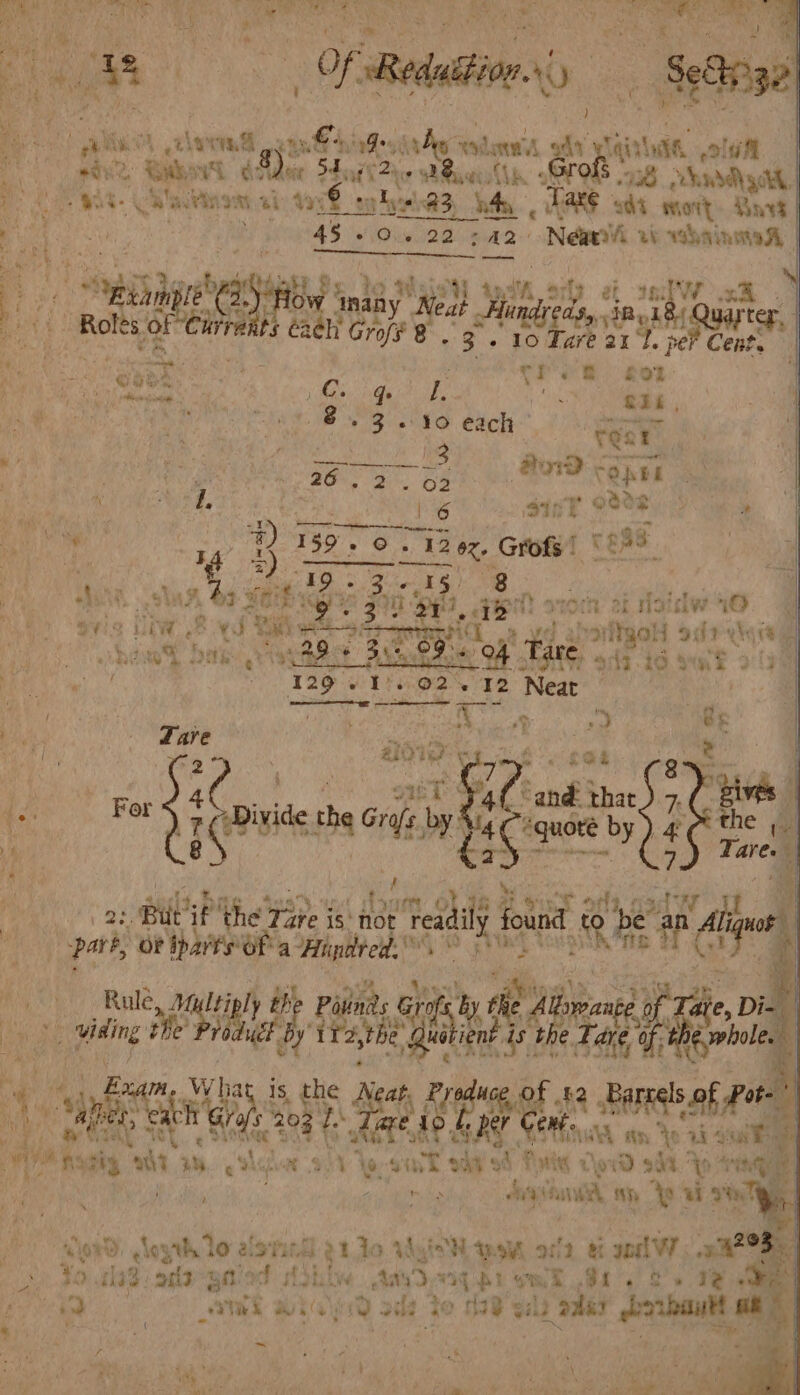 12 Of Reduction. Sect. 3.
C. q. l.
8) 54 . 2 . 18 Grofs
6 23 . 4 Tare
45 . 0 . 22 : 12 Neat
Example (2.) How many Neat Hundreds, in 18 Quarter
Roles of Currants each Grofs 8 . 3 . 10 Tare 21 l. per Cent.
C. q. l.
8 . 3 . 10 each
3
26 . 2 . 02
6
159 . 0 . 12 oz. Grofs
14
19 . 3 . 15 8
9 . 3 21 . 12
29 . 3 . 09 . 04 Tare
129 . 1 . 02 . 12 Neat
Tare
For { 2 4 7 8 } Divide the Grofs by { 7 4 14 2 } and that quote by { 8 7 4 7 } gives the Tare.
2: But if the Tare is not readily found to be an Aliquot
part, or parts of a Hundred.
Rule, Multiply the Pounds Grofs by the Allowance of Tare, Di-
viding the Product by 112, the Quotient is the Tare of the whole.
Exam, What is the Neat Produce of 12 Barrels of Pot-
afhes, each Grofs 203 l. Tare 10 l. per Cent.
203